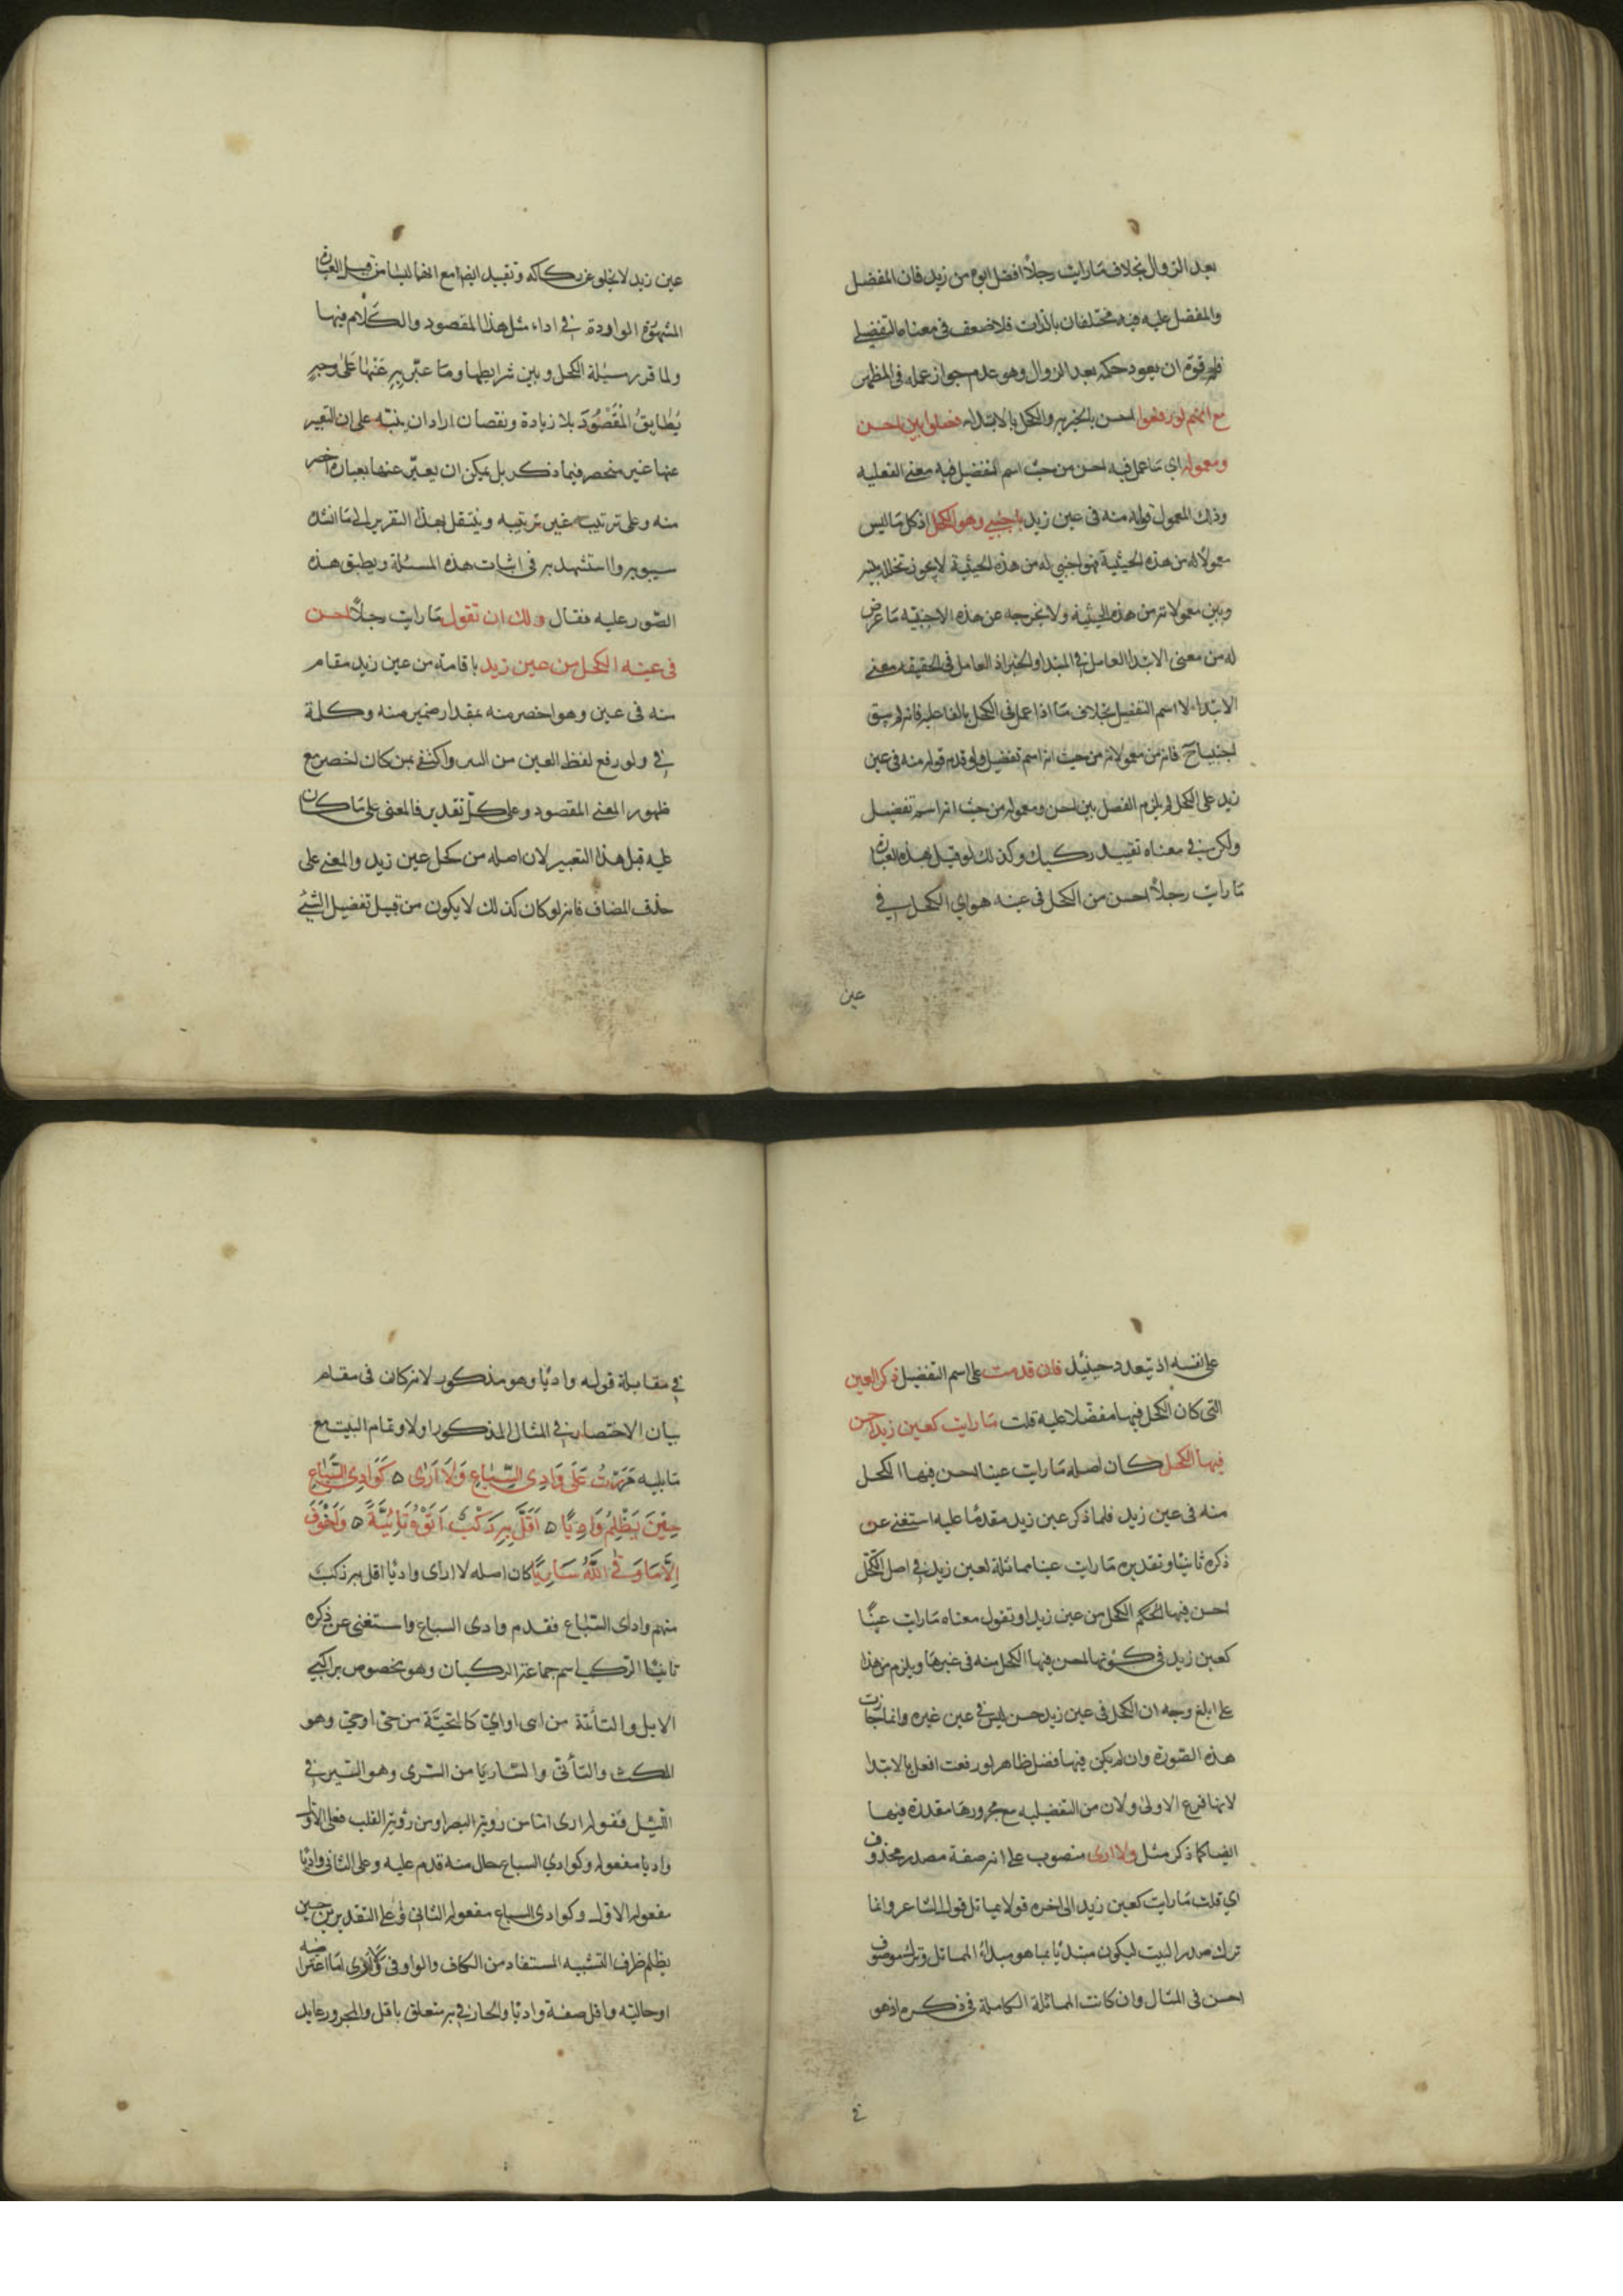 بعد الزوال بخلاف ما رايت رجلاً افضل ابوه من زيد فان المفضل
والمفضل عليه فيه مختلفان بالذات فلا ضعف فى معناه التفضيلي
فله قوة ان يعود حكمه بعد الزوال وهو عدم جواز عمله فى المظهر
مع انهم لو رفعوا احسن بالخبريه والكحل بالابتداء فصلوا بين احسن
ومعموله اى ما عمل فيه احسن من حيث اسم تفضيل فيه معنى الفعليه
وذلك المعمول قوله منه فى عين زيد باجنبي وهو الكحل اذ كل ما ليس
معمولا له من هذه الحيثية فهو اجنبي له من هذه الحيثية لا يجوز تخلله بينه
وبين معمولاته من هذه الحيثية ولا يخرجه عن هذه الاجنبيه ما عرض
له من معنى الابتدا العامل في المبتدا والخبر اذ العامل فى الحقيقه معنى
الابتداء لا اسم التفضيل بخلاف ما اذا عمل فى الكحل بالفاعليه فانه لم يبق
اجنبيا ح فانه من معمولاته من حيث انه اسم تفضيل ولو قدم قوله منه فى عين
زيد على الكحل لم يلزم الفصل بين احسن ومعموله من حيث انه اسم تفضيل
ولكن في معناه تقييد ركيك وكذلك لو قيل بهذه العبارة
ما رايت رجلاً احسن من الكحل فى عينه هو اى الكحل في
عين
عين زيد لا يخلو عن ركاكه وتقييد ايضا مع انهما ليسا من قبيل العبارة
المشهورة الواردة في اداء مثل هذا المقصود والكلام فيها
ولما قرر مسئلة الكحل وبين شرايطها وما عبّر به عَنْها عَلى وجهٍ
يُطابقُ المَقْصُودَ بلا زيادة ونقصان اراد ان ينبّه على ان التعبير
عنها غير منحصر فيما ذكر بل يمكن ان يعبّر عنها بعبارة اخصر
منه وعلى ترتيب غير ترتيبه وينتقل بهذا التقرير الى ما انشده
سيبويه واستشهد به فى اثبات هذه المسئلة ويطبق هذه
الصّور عليه فقال ولك ان تقول ما رايت رجلاً احسن
فى عينه الكحل من عين زيد باقامة من عين زيد مقام
منه فى عين وهو اخصر منه بمقدار ضمير منه وكلمة
في ولو رفع لفظ العين من البين واكتفى بمن كان اخصر مع
ظهور المعنى المقصود وعلى كلّ تقدير فالمعنى على ما كان
عليه قبل هذا التعبير لان اصله من كحل عين زيد والمعنى على
حذف المضاف فانه لو كان كذلك لا يكون من قبيل تفضيل الشئ
على نفسه اذ تعدد حينئذ فان قدمت على اسم التفضيل ذكر العين
التى كان الكحل فيها مفضّلا عليه قلت ما رايت كعين زيد احسن
فيها الكحل كان اصله ما رايت عينا احسن فيها الكحل
منه فى عين زيد فلما ذكر عين زيد مقدمًا عليه استغنى عن
ذكره ثانيًا وتقديره ما رايت عينا مماثلة لعين زيد في اصل الكحل
احسن فيها الكحل من عين زيد او تقول معناه ما رايت عينًا
كعين زيد فى كونها احسن فيها الكحل منه فى غيرها ويلزم من هذا
على ابلغ وجه ان الكحل فى عين زيد حسن ليس في عين غيره وانما جازت
هذه الصّورة وان لم يكن فيها فصل ظاهر لو رفعت افعل بالابتدا
لانها فرع الاولى ولان من التفضيليه مع مجرورها مقدرة فيها
ايضا كما ذكر مثل ولا ارى منصوب على انه صفة مصدر محذوف
اي قلت ما رايت كعين زيد الى اخره قولا يماثل قول الشاعر وانما
ترك صدر البيت ليكون مبتديًا بما هو مبدأ المماثل وترك موصوف
احسن فى المثال وان كانت المماثلة الكاملة فى ذكره اذ هو
في
في مقابلة قوله واديًا وهو مذكور لانه كان فى مقام
بيان الاختصار في المثال المذكور اولا وتمام البيت مع
ما يليه مَرَرْتُ عَلَى وَادِى السِّبَاعِ وَلَا اَرَى ٥ كَوَادِى السِّبَاعِ
حِيْنَ يَظْلِمُ وَادِيًا ٥ اَقَلَّ بِهِ رَكْبٌ اَتَوْهُ تَايَّةً ٥ وَاَخْوَفَ
اِلَّا مَا وَقَى اللّٰهُ سَارِيًا كان اصله لا ارى واديًا اقل به ركب
منهم وادى السّباع فقدم وادى السباع واستغنى عن ذكره
ثانيًا الرّكب اسم جماعة الركبان وهو مخصوص براكبي
الابل والتأيّة من اى اوايّ كالتحيّة من حيّ اوحيّ وهو
المكث والتأنّى والساريَا من السّرى وهو السّير في
اللّيل فقوله ارى امّا من رؤية البصر او من رؤية القلب فعلى الاول
واديا مفعوله وكوادى السباع حال منه قدم عليه وعلى الثانى واديًا
مفعوله الاوّل وكوادى السباع مفعوله الثانى وعلى التقديرين حين
يظلم ظرف التشبيه المستفاد من الكاف والواو فى ولا ارى امّا اعتراضيه
او حاليّه واقل صفة واديًا والجار في به متعلق باقل والمجرور عايد